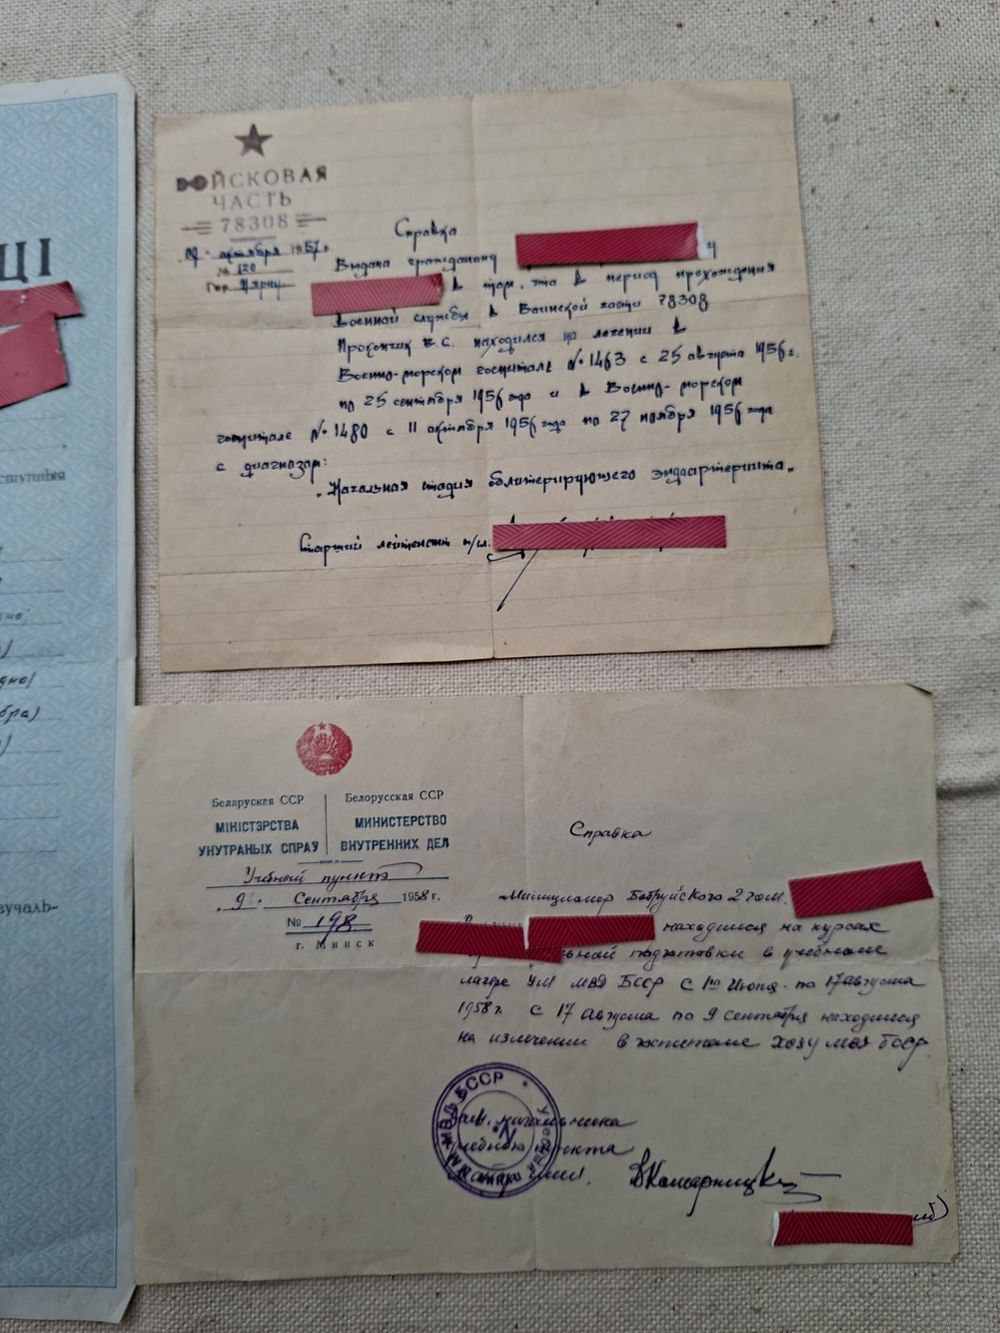 ЦІ
ВОЙСКОВАЯ
ЧАСТЬ
78308
октября 1957 г.
№ 120
Гор.
Справка
Выдана гражданину
в том, что в период прохождения
Военной службы в Воинской части 78308
находился на лечении в
Военно-морском госпитале № 1463 с 25 августа 1956 г.
по 25 сентября 1956 года и в Военно-морском
госпитале № 1480 с 11 октября 1956 года по 27 ноября 1956 года
с диагнозом:
"Начальная стадия облитерирующего эндоартериита"
Старший лейтенант м/сл.
Беларуская ССР
МІНІСТЭРСТВА
УНУТРАНЫХ СПРАУ
Белорусская ССР
МИНИСТЕРСТВО
ВНУТРЕННИХ ДЕЛ
Учебный пункт
"9" Сентября 1958 г.
№ 198
г. Минск
Справка
Милиционер Бобруйского 2 гом.
находился на курсах
ьной подготовки в учебном
лагере УМ МВД БССР с 1го Июня по 17 августа
1958 г. с 17 Августа по 9 Сентября находился
на излечении в госпитале ХОЗУ МВД БССР.
МВД БССР
Зам. начальника
учебного пункта